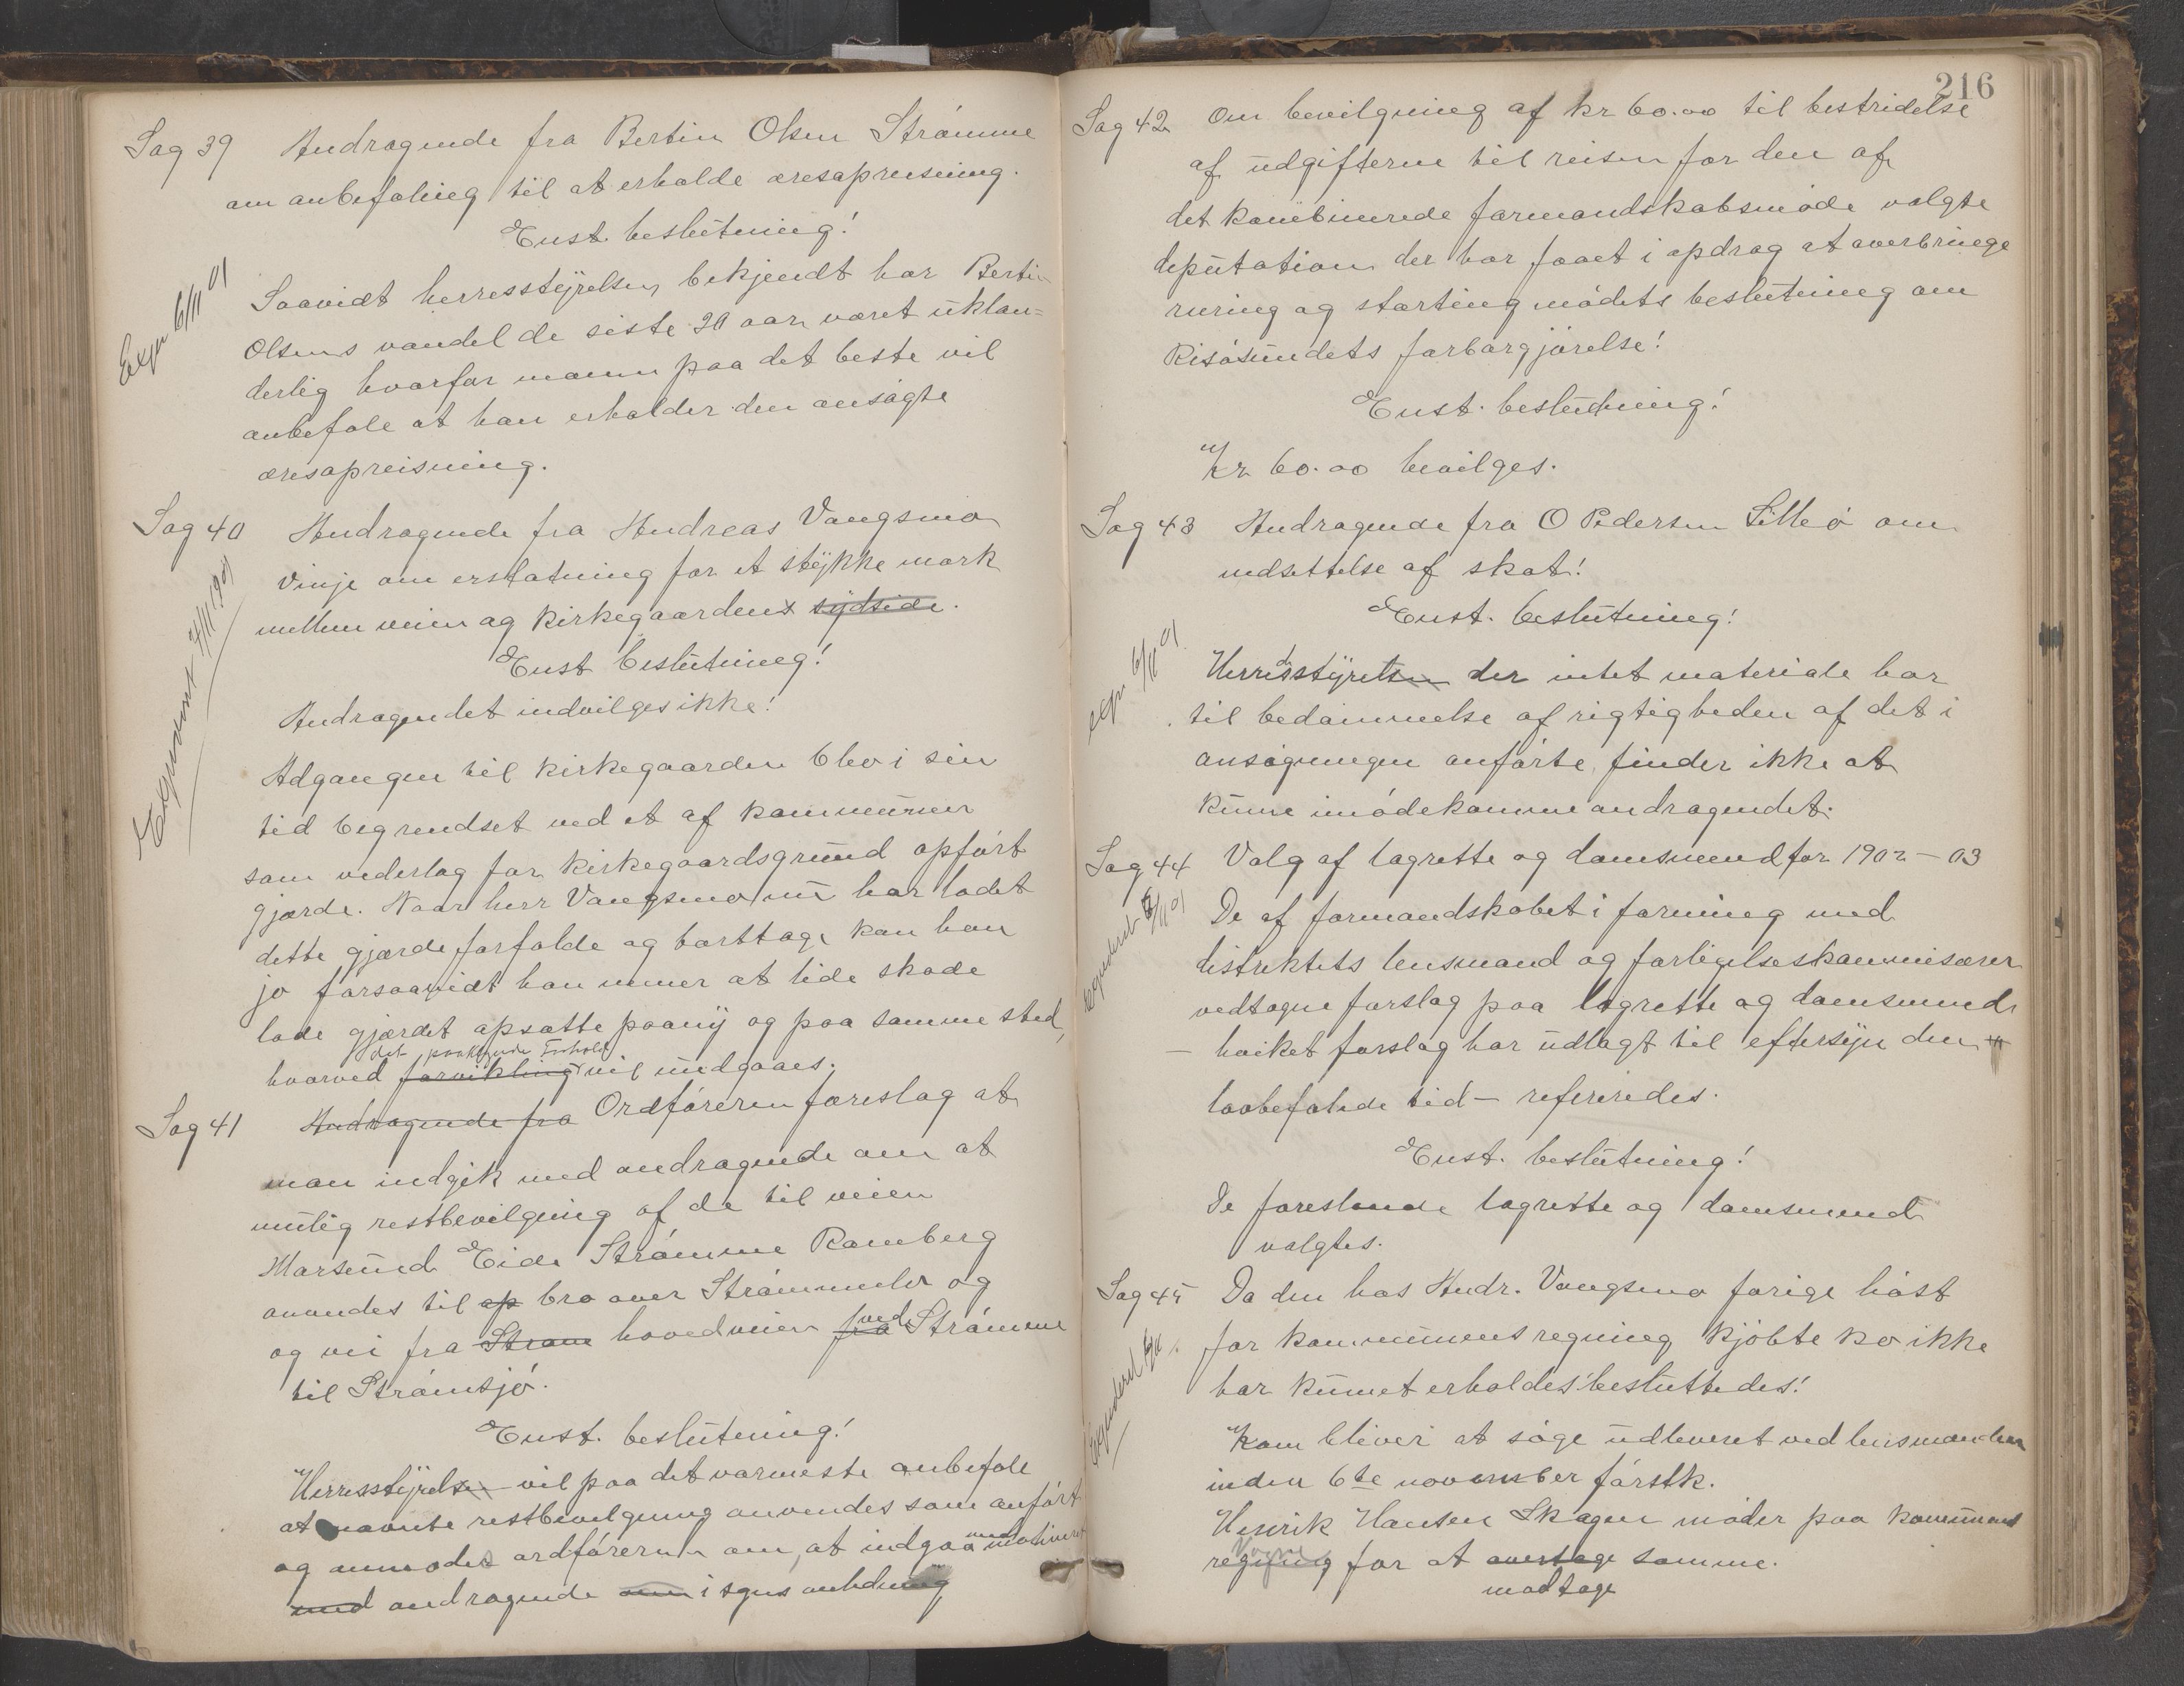 Sag 39 Andragende fra Bertin Olsen Strømme
om anbefaling til at erholde æresopreisning.
Enst. beslutning!
Expr 6/11 01
Saavidt herresstyrelsen bekjendt har Bertin
Olsens vandel de siste 20 aar været uklan=
derlig hvorfor mann paa det beste vil
anbefale at han erholder den ansøgte
æresopreisning.
Sag 40 Andragende fra Andreas Vangsmo
Vinje om erstatning for et stykke mark
mellem veien og kirkegaardens sydside.
Enst beslutning!
Andragendet indvilges ikke!
Adgangen til kirkegaarden blev i sin
tid begrendset ved et af kommunen
som vederlag for kirkegaardsgrund opført
gjærde. Naar herr Vangsmo nu har ladet
dette gjærde forfalde og borttage kan han
jo forsaavidt han mener at lide skade
lade gjærdet opsætte paany og paa samme sted,
det paaklagede Forhold
hvorved forvikling vil undgaaes.
Sag 41 Andragende fra Ordføreren foreslog at
man indgik med andragende om at
mulig restbevilgning af de til veien
Marsund Eide Strømme Ramberg
anvendes til op bro over Strømmeler og
og vei fra Strøm hovedveien fra ved Strømme
til Strømsjø.
Enst. beslutning!
"Herresstyrelsen vil paa det varmeste anbefale
at nævnte restbevilgning anvendes som anført
og anmoder ordføreren om, at indgaa med motiveret
med andragende om i sgns anledning
216
Sag 42 Om bevilgning af kr 60.00 til bestridelse
af udgifterne til reisen for den af
det kombinerede formandskabsmøde valgte
deputation der har faaet i opdrag at overbringe
rering og storting mødets beslutning om
Risøsundets farbargjørelse!
Enst. beslutning!
"kr 60.00 bevilges.
Sag 43 Andragende fra O Pedersen Lilleø om
nedsettelse af skat!
Enst. beslutning!
expr 6/11 01
Herredsstyret der intet materiale har
til bedømmelse af rigtigheden af det i
ansøgningen anførte, finder ikke at
kunne imødekomme andragendet.
Sag 44 Valg af lagrette og domsmend for 1902-03
De af formandskabet i forening med
distriktets lensmand og forligelseskommisærer
vedtagne forslag paa lagrette og domsmend
- hvilket forslag har udlagt til eftersyn den
lovbefalede tid - refereredes.
Enst. beslutning!
De foreslaaede lagrette og domsmend
valgtes.
Sag 45 Da den hos Andr. Vangsmo forige høst
for kommunens regning kjøbte ko ikke
har kunnet erholdes besluttedes!
"Koen bliver at søge udleveret ved lensmanden
inden 6te november førstk.
Henrik Hansen Skagen møder paa kommunens
regning for at overtage samme.
modtage